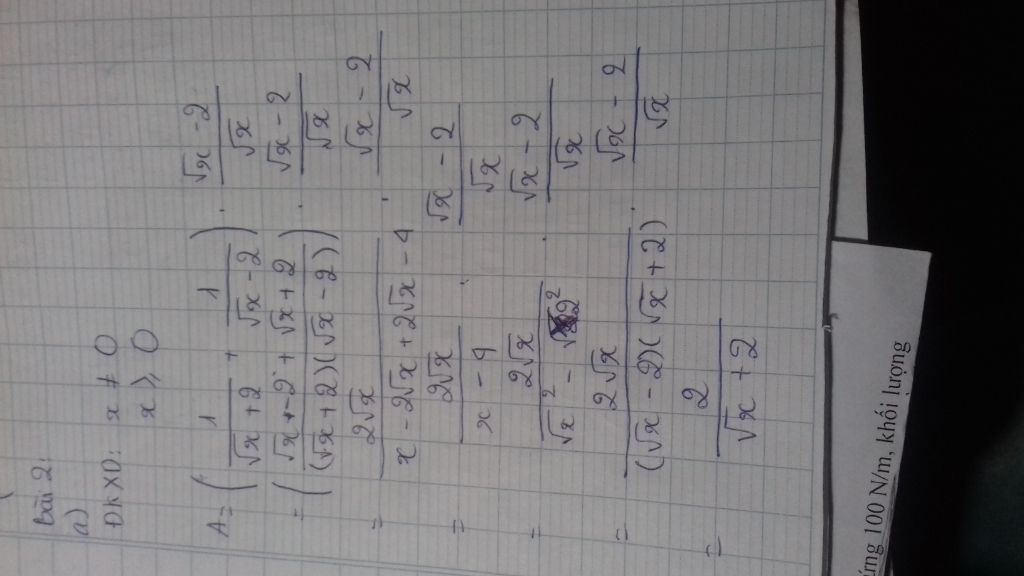 Bài 2:
a)
ĐKXĐ: x ≠ 0
x ⩾ 0
A = ( 1/(√x + 2) + 1/(√x - 2) ) . (√x - 2)/√x
= ( (√x - 2 + √x + 2)/((√x + 2)(√x - 2)) ) . (√x - 2)/√x
= 2√x/(x - 2√x + 2√x - 4) . (√x - 2)/√x
= 2√x/(x - 4) . (√x - 2)/√x
= 2√x/(√x² - 2²) . (√x - 2)/√x
= 2√x/((√x - 2)(√x + 2)) . (√x - 2)/√x
= 2/(√x + 2)
ứng 100 N/m, khối lượng